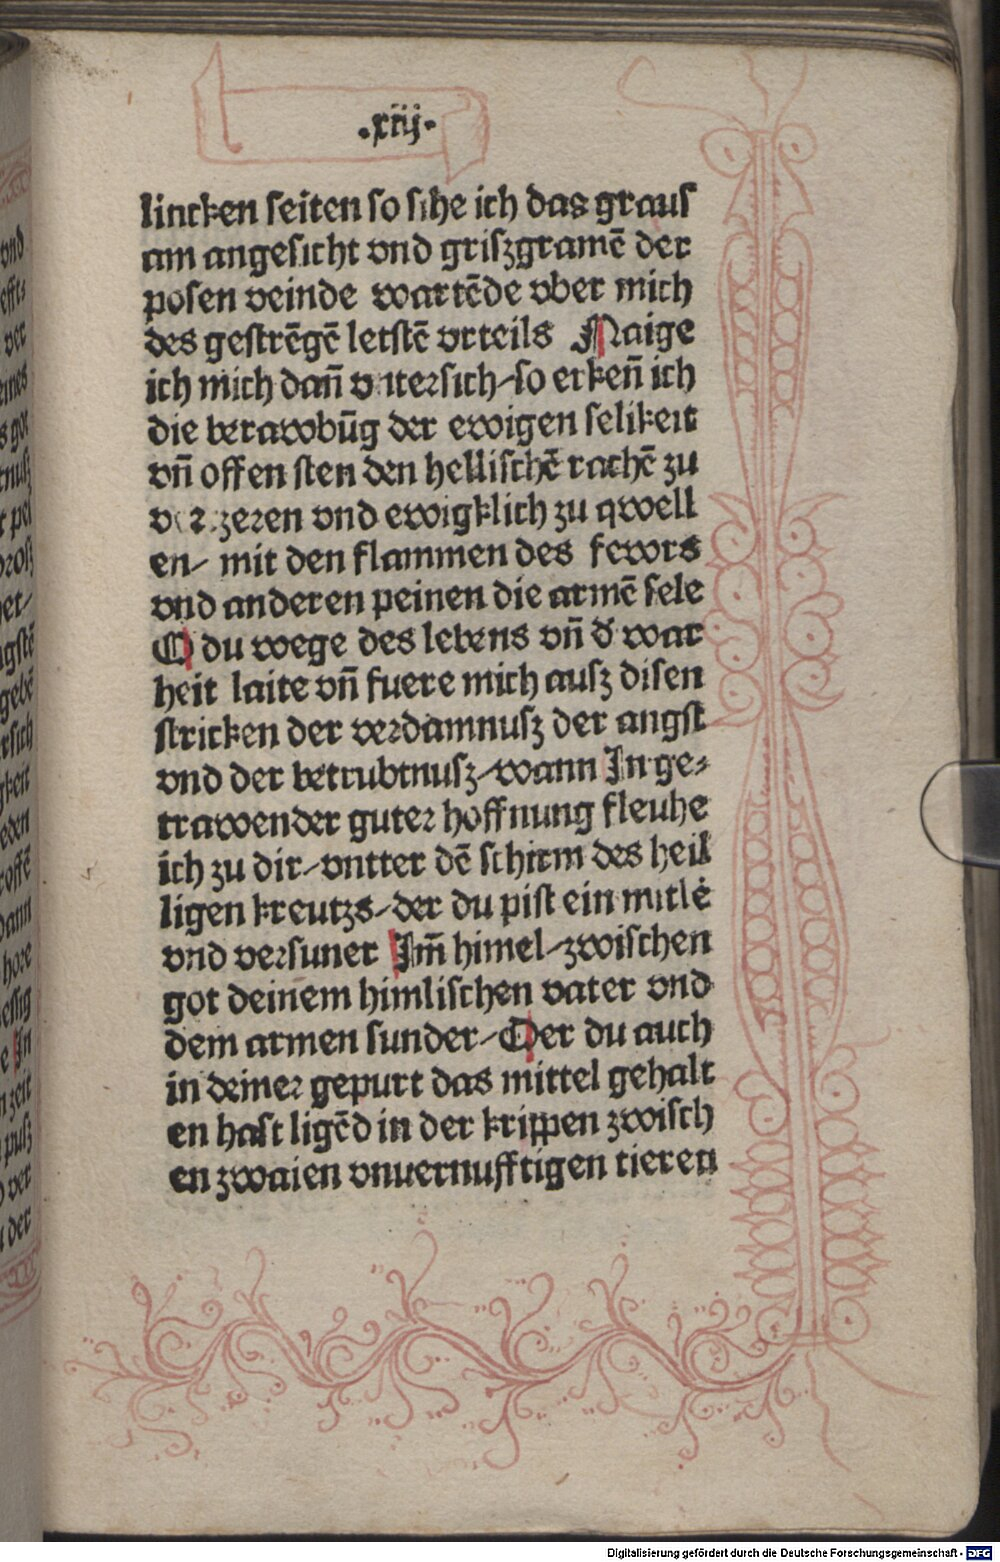 .xiij.
lincken seiten so sihe ich das graus
am angesicht vnd griszgramē der
posen veinde wartēde vber mich
des gestrēgē letstē vrteils Naige
ich mich dan̄ vntersich/so erken̄ ich
die berawbūg der ewigen selikeit
vn̄ offen sten den hellischē rachē zu
verzeren vnd ewigklich zu qwell
en/ mit den flammen des fewrs
vnd anderen peinen die armē sele
O du wege des lebens vn̄ d' war
heit laite vn̄ fuere mich ausz disen
stricken der verdamnusz der angst
vnd der betrubtnusz/wann In ge⸗
trawender guter hoffnung fleuhe
ich zu dir/vntter dē schirm des heil
ligen kreutzs/der du pist ein mitlė
vnd versuner Im̄ himel/zwischen
got deinem himlischen vater vnd
dem armen sunder/Der du auch
in deiner gepurt das mittel gehalt
en hast ligēd in der krippen zwisch
en zwaien vnuernufftigen tieren
vnd
ver
eines
s got
pei
prosz
ngstē
gebē
rsich
gkeit
dann
hore
essig
e In
zeit
pusz
ver
der
Digitalisierung gefördert durch die Deutsche Forschungsgemeinschaft - DFG